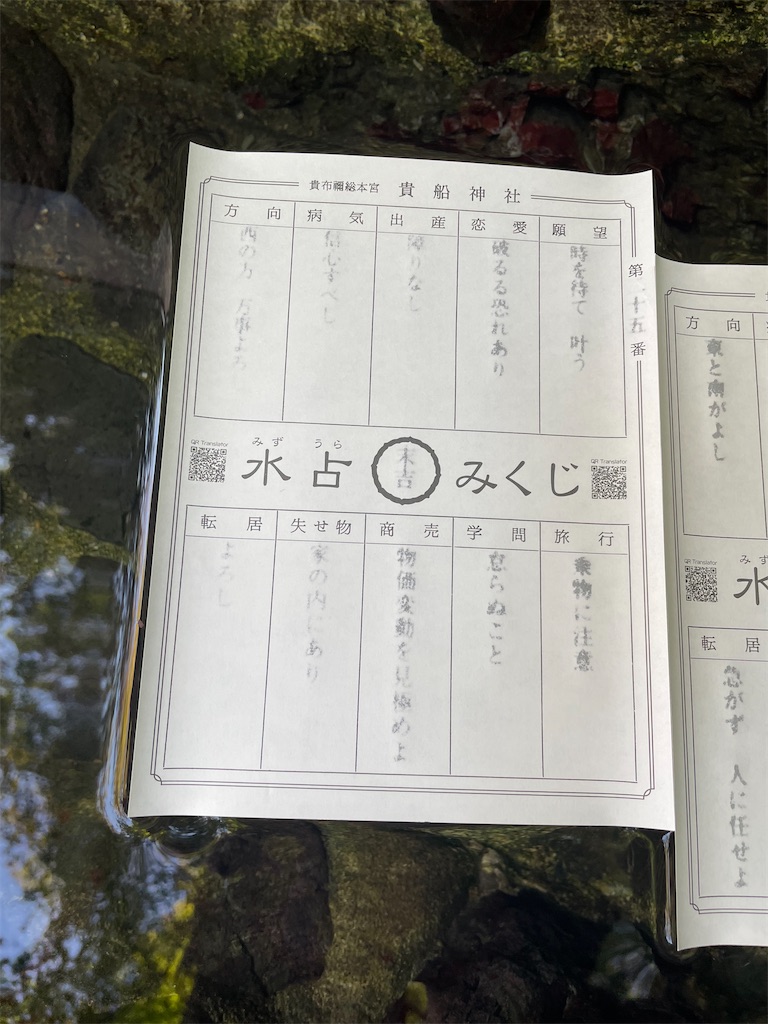 貴布禰総本宮 貴船神社
第二十五番
願望
時を待て 叶う
恋愛
破るる恐れあり
出産
障りなし
病気
信心すべし
方向
西の方 万事よろ
QR Translator
みずうら
水占
末吉
みくじ
QR Translator
旅行
乗物に注意
学問
怠らぬこと
商売
物価変動を見極めよ
失せ物
家の内にあり
転居
よろし
方向
東と南がよし
QR Translator
みず
水
転居
急がず 人に任せよ